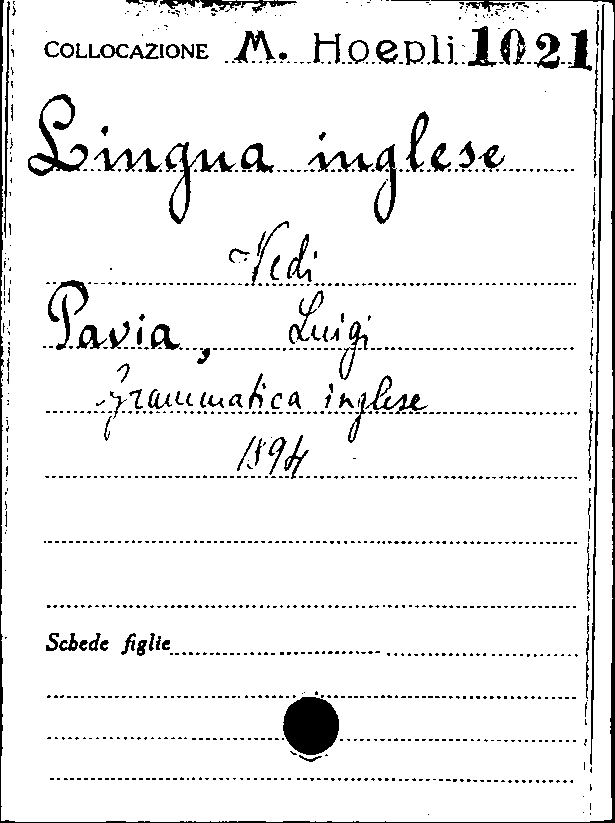 COLLOCAZIONE M. Hoepli 1021
Lingua inglese
Vedi
Pavia, Luigi
Grammatica inglese
1894
Schede figlie